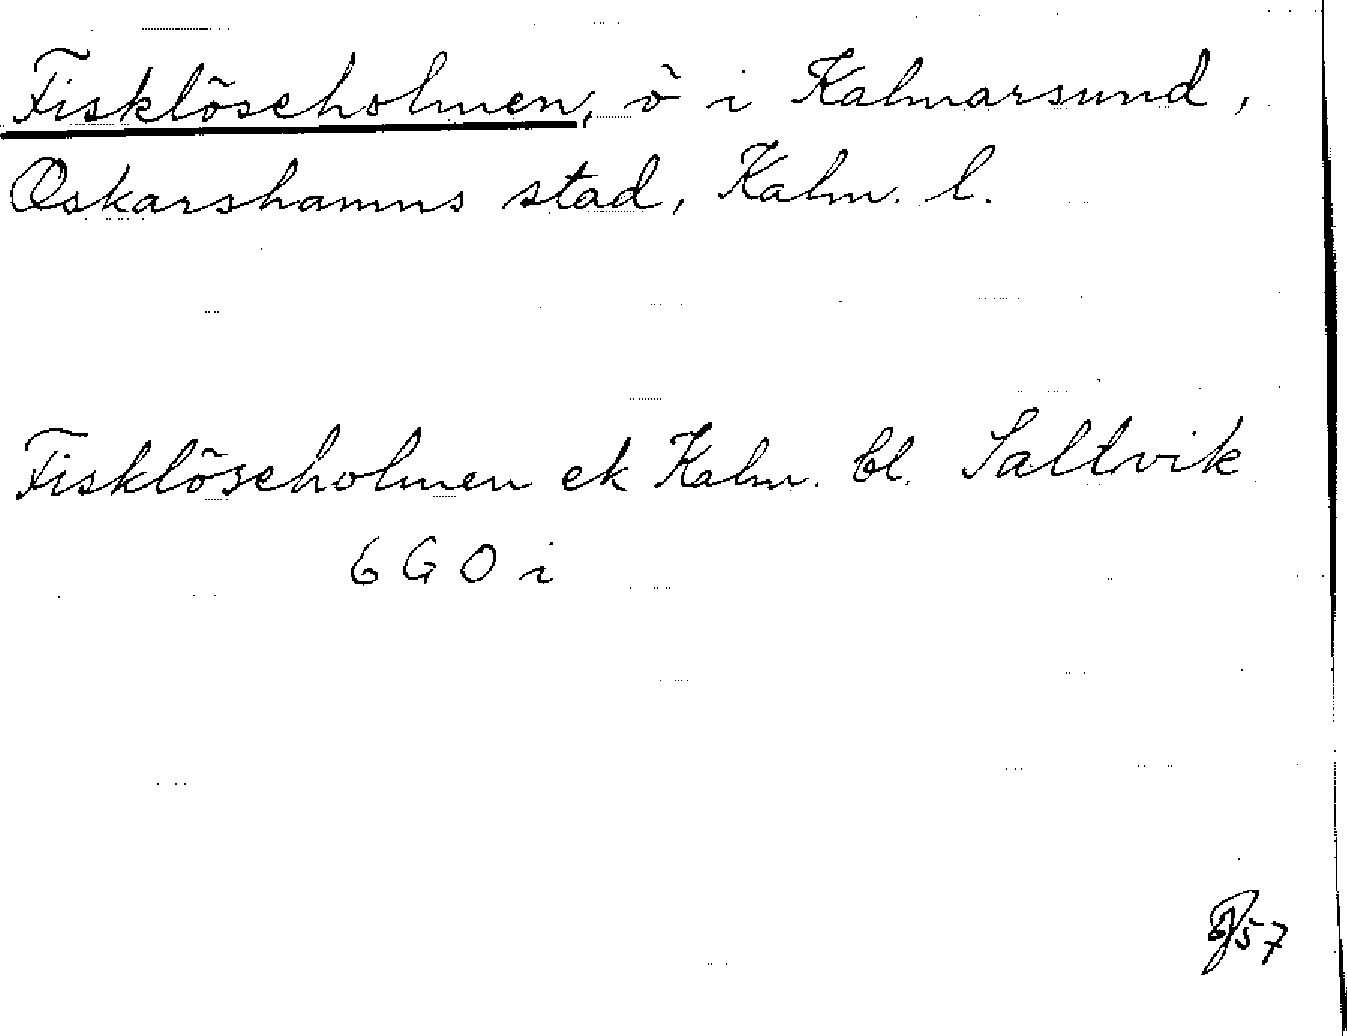 Fisklöseholmen, ö i Kalmarsund,
Oskarshamns stad, Kalm. l.
Fisklöseholmen ek Kalm. bl. Saltvik
6 G O i
57